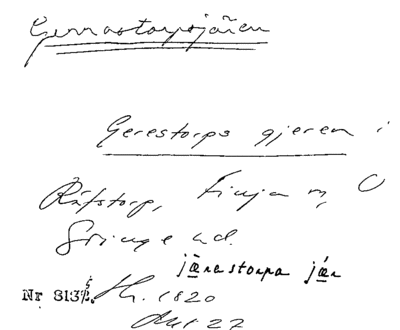 Gerrastorpsjären
Gerestorps gjeren i
Räfstorp, Finja m, O
Göinge hd.
järastorpa jär
Nr 813½. Sk. 1820
Akt 27